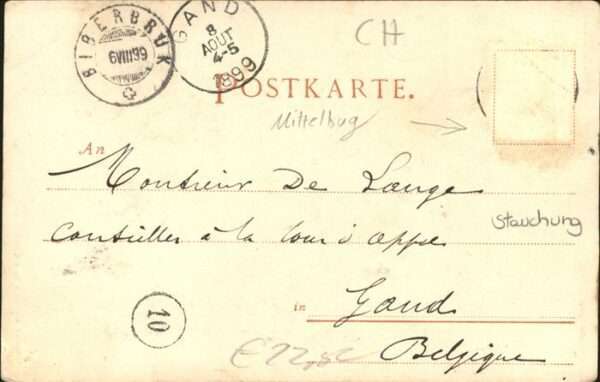 BIBERBRUK
6VIII99
GAND
8
AOUT
4-5
1899
CH
POSTKARTE.
Mittelbug
An
Monsieur De Lange
Conseiller à la Cour d'appel
Stauchung
10
in
Gand
Belgique